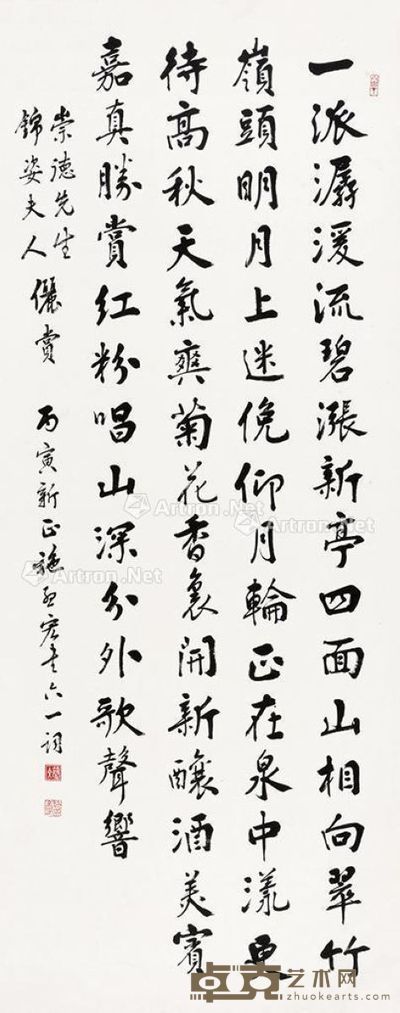 一派潺湲流碧漲新亭四面山相向翠竹
嶺頭明月上迷俛仰月輪正在泉中漾更
待高秋天氣爽菊花香裏開新釀酒美賓
嘉真勝賞紅粉唱山深分外歌聲響
崇德先生
錦姿夫人
儷賞 丙寅新正施孟宏書六一詞
Artron.Net
Artron.Net
Artron.Net
Artron.Net
卓克艺术网
zhuokearts.com